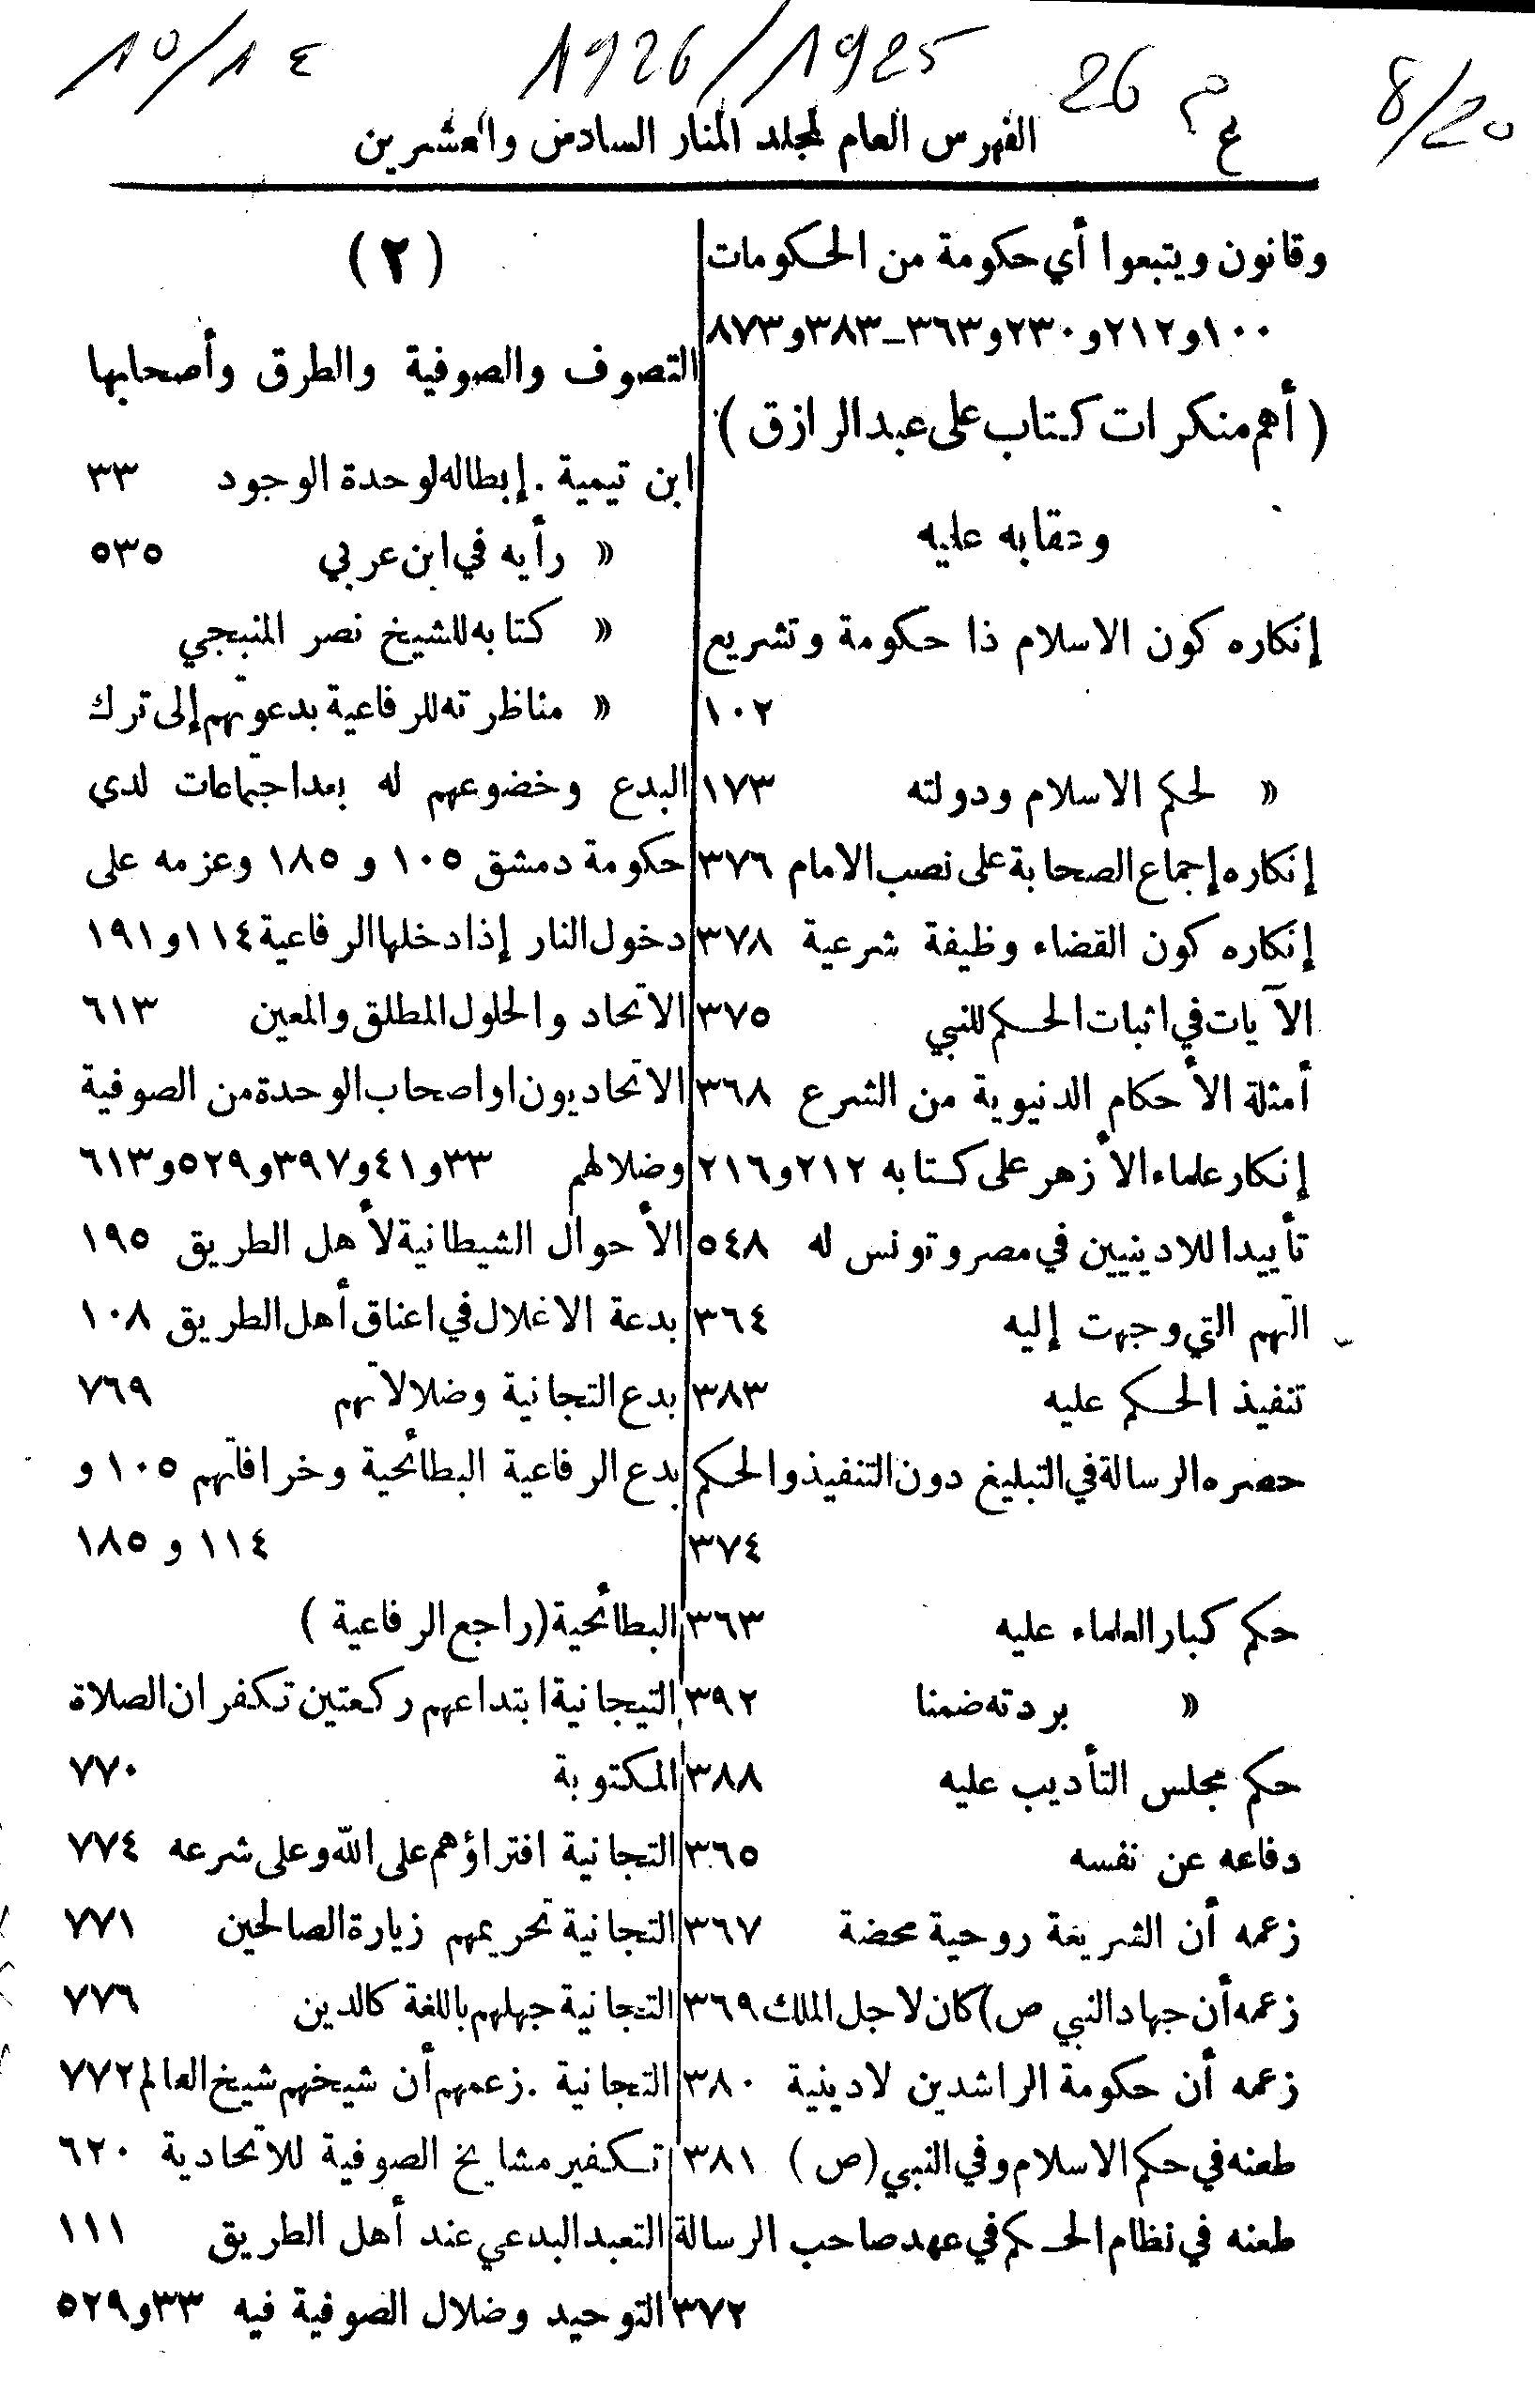 8/20 ع م 26 1926/1925 10/1 ٤
الفهرس العام لمجلد المنار السادس والعشرين
وقانون ويتبعوا أي حكومة من الحكومات
١٠٠ و٢١٢ و٢٣٠ و٣٦٣ـ٣٨٣ و٨٧٣
( أهم منكرات كتاب علي عبد الرازق )
عليه
إنكاره كون الاسلام ذا حكومة وتشريع
١٠٢
« لحكم الاسلام ودولته ١٧٣
إنكاره إجماع الصحابة على نصب الامام ٣٧٦
إنكاره كون القضاء وظيفة شرعية ٣٧٨
الآيات في اثبات الحكم للنبي ٣٧٥
أمثلة الأحكام الدنيوية من الشرع ٣٦٨
إنكار علماء الأزهر على كتابه ٢١٢ و٢١٦
تأييد اللادينيين في مصر وتونس له ٥٤٨
التهم التي وجهت إليه ٣٦٤
تنفيذ الحكم عليه ٣٨٣
حصره الرسالة في التبليغ دون التنفيذ والحكم
٣٧٤
حكم كبار العلماء عليه ٣٦٣
« بردته ضمنا ٣٩٢
حكم مجلس التأديب عليه ٣٨٨
دفاعه عن نفسه ٣٦٥
زعمه أن الشريعة روحية محضة ٣٦٧
زعمه أن جهاد النبي ص) كان لاجل الملك ٣٦٩
زعمه أن حكومة الراشدين لادينية ٣٨٠
طعنه في حكم الاسلام وفي النبي (ص) ٣٨١
طعنه في نظام الحكم في عهد صاحب الرسالة
٣٧٢
(٢)
التصوف والصوفية والطرق وأصحابها
ابن تيمية . إبطاله لوحدة الوجود ٣٣
« رأيه في ابن عربي ٥٣٥
« كتابه للشيخ نصر المنبجي
« مناظرته للرفاعية بدعوتهم إلى ترك
البدع وخضوعهم له بعد اجتماعات لدي
حكومة دمشق ١٠٥ و ١٨٥ وعزمه على
دخول النار إذا دخلها الرفاعية ١١٤ و١٩١
الاتحاد والحلول المطلق والمعين ٦١٣
الاتحاديون او اصحاب الوحدة من الصوفية
وضلالهم ٣٣ و٤١ و٣٩٧ و٥٢٩ و٦١٣
الأحوال الشيطانية لأهل الطريق ١٩٥
بدعة الاغلال في اعناق أهل الطريق ١٠٨
بدع التجانية وضلالاتهم ٧٦٩
بدع الرفاعية البطائحية وخرافاتهم ١٠٥ و
١١٤ و ١٨٥
البطائحية (راجع الرفاعية )
التيجانية ابتداعهم ركعتين تكفران الصلاة
المكتوبة ٧٧٠
التجانية افتراؤهم على الله وعلى شرعه ٧٧٤
التجانية تحريمهم زيارة الصالحين ٧٧١
التجانية جهلهم باللغة كالدين ٧٧٦
التجانية . زعمهم أن شيخهم شيخ العالم ٧٧٢
تكفير مشايخ الصوفية للاتحادية ٦٢٠
التعبد البدعي عند أهل الطريق ١١١
التوحيد وضلال الصوفية فيه ٣٣ و٥٢٩